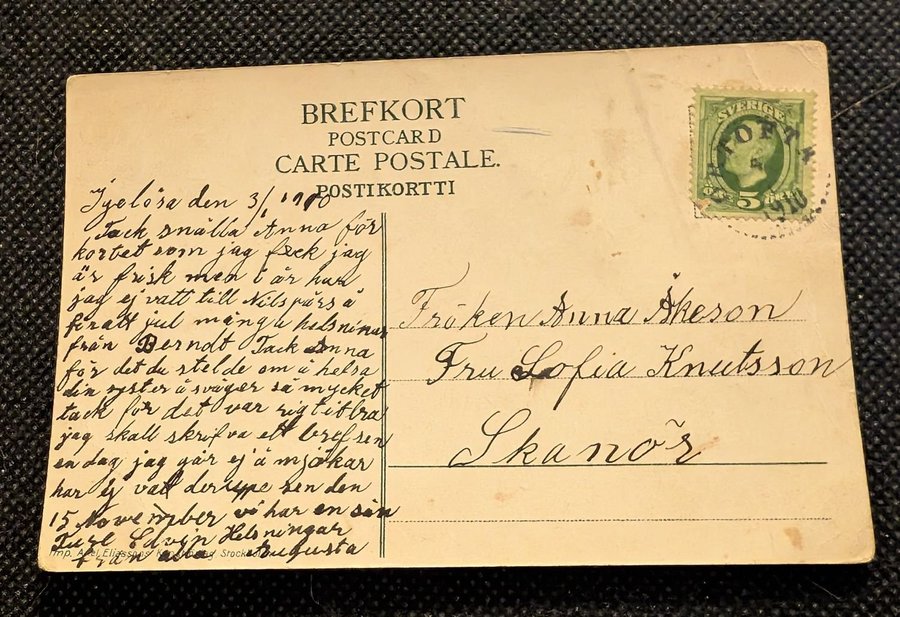 BREFKORT
POSTCARD
CARTE POSTALE.
POSTIKORTTI
SVERIGE
5
1910
den 3/1 1910
Tack snälla Anna för
kortet som jag feck jag
är frisk men i år har
jag ej vatt till Nilspärs å
firatt jul många helsninar
från Berndt Tack Anna
för det du stelde om å helsa
din syster å svåger så mycket
tack för det var rigtit bra
jag skall skrifva ett bref sen
en dag jag går ej å mjökar
har ej vatt der uppe sen den
15 November vi har en sån
Ture Edvin Helsningar
från Augusta
Imp. Axel Eliassons Konstförlag, Stockholm
Fröken Anna Åkeson
Fru Sofia Knutsson
Skanör